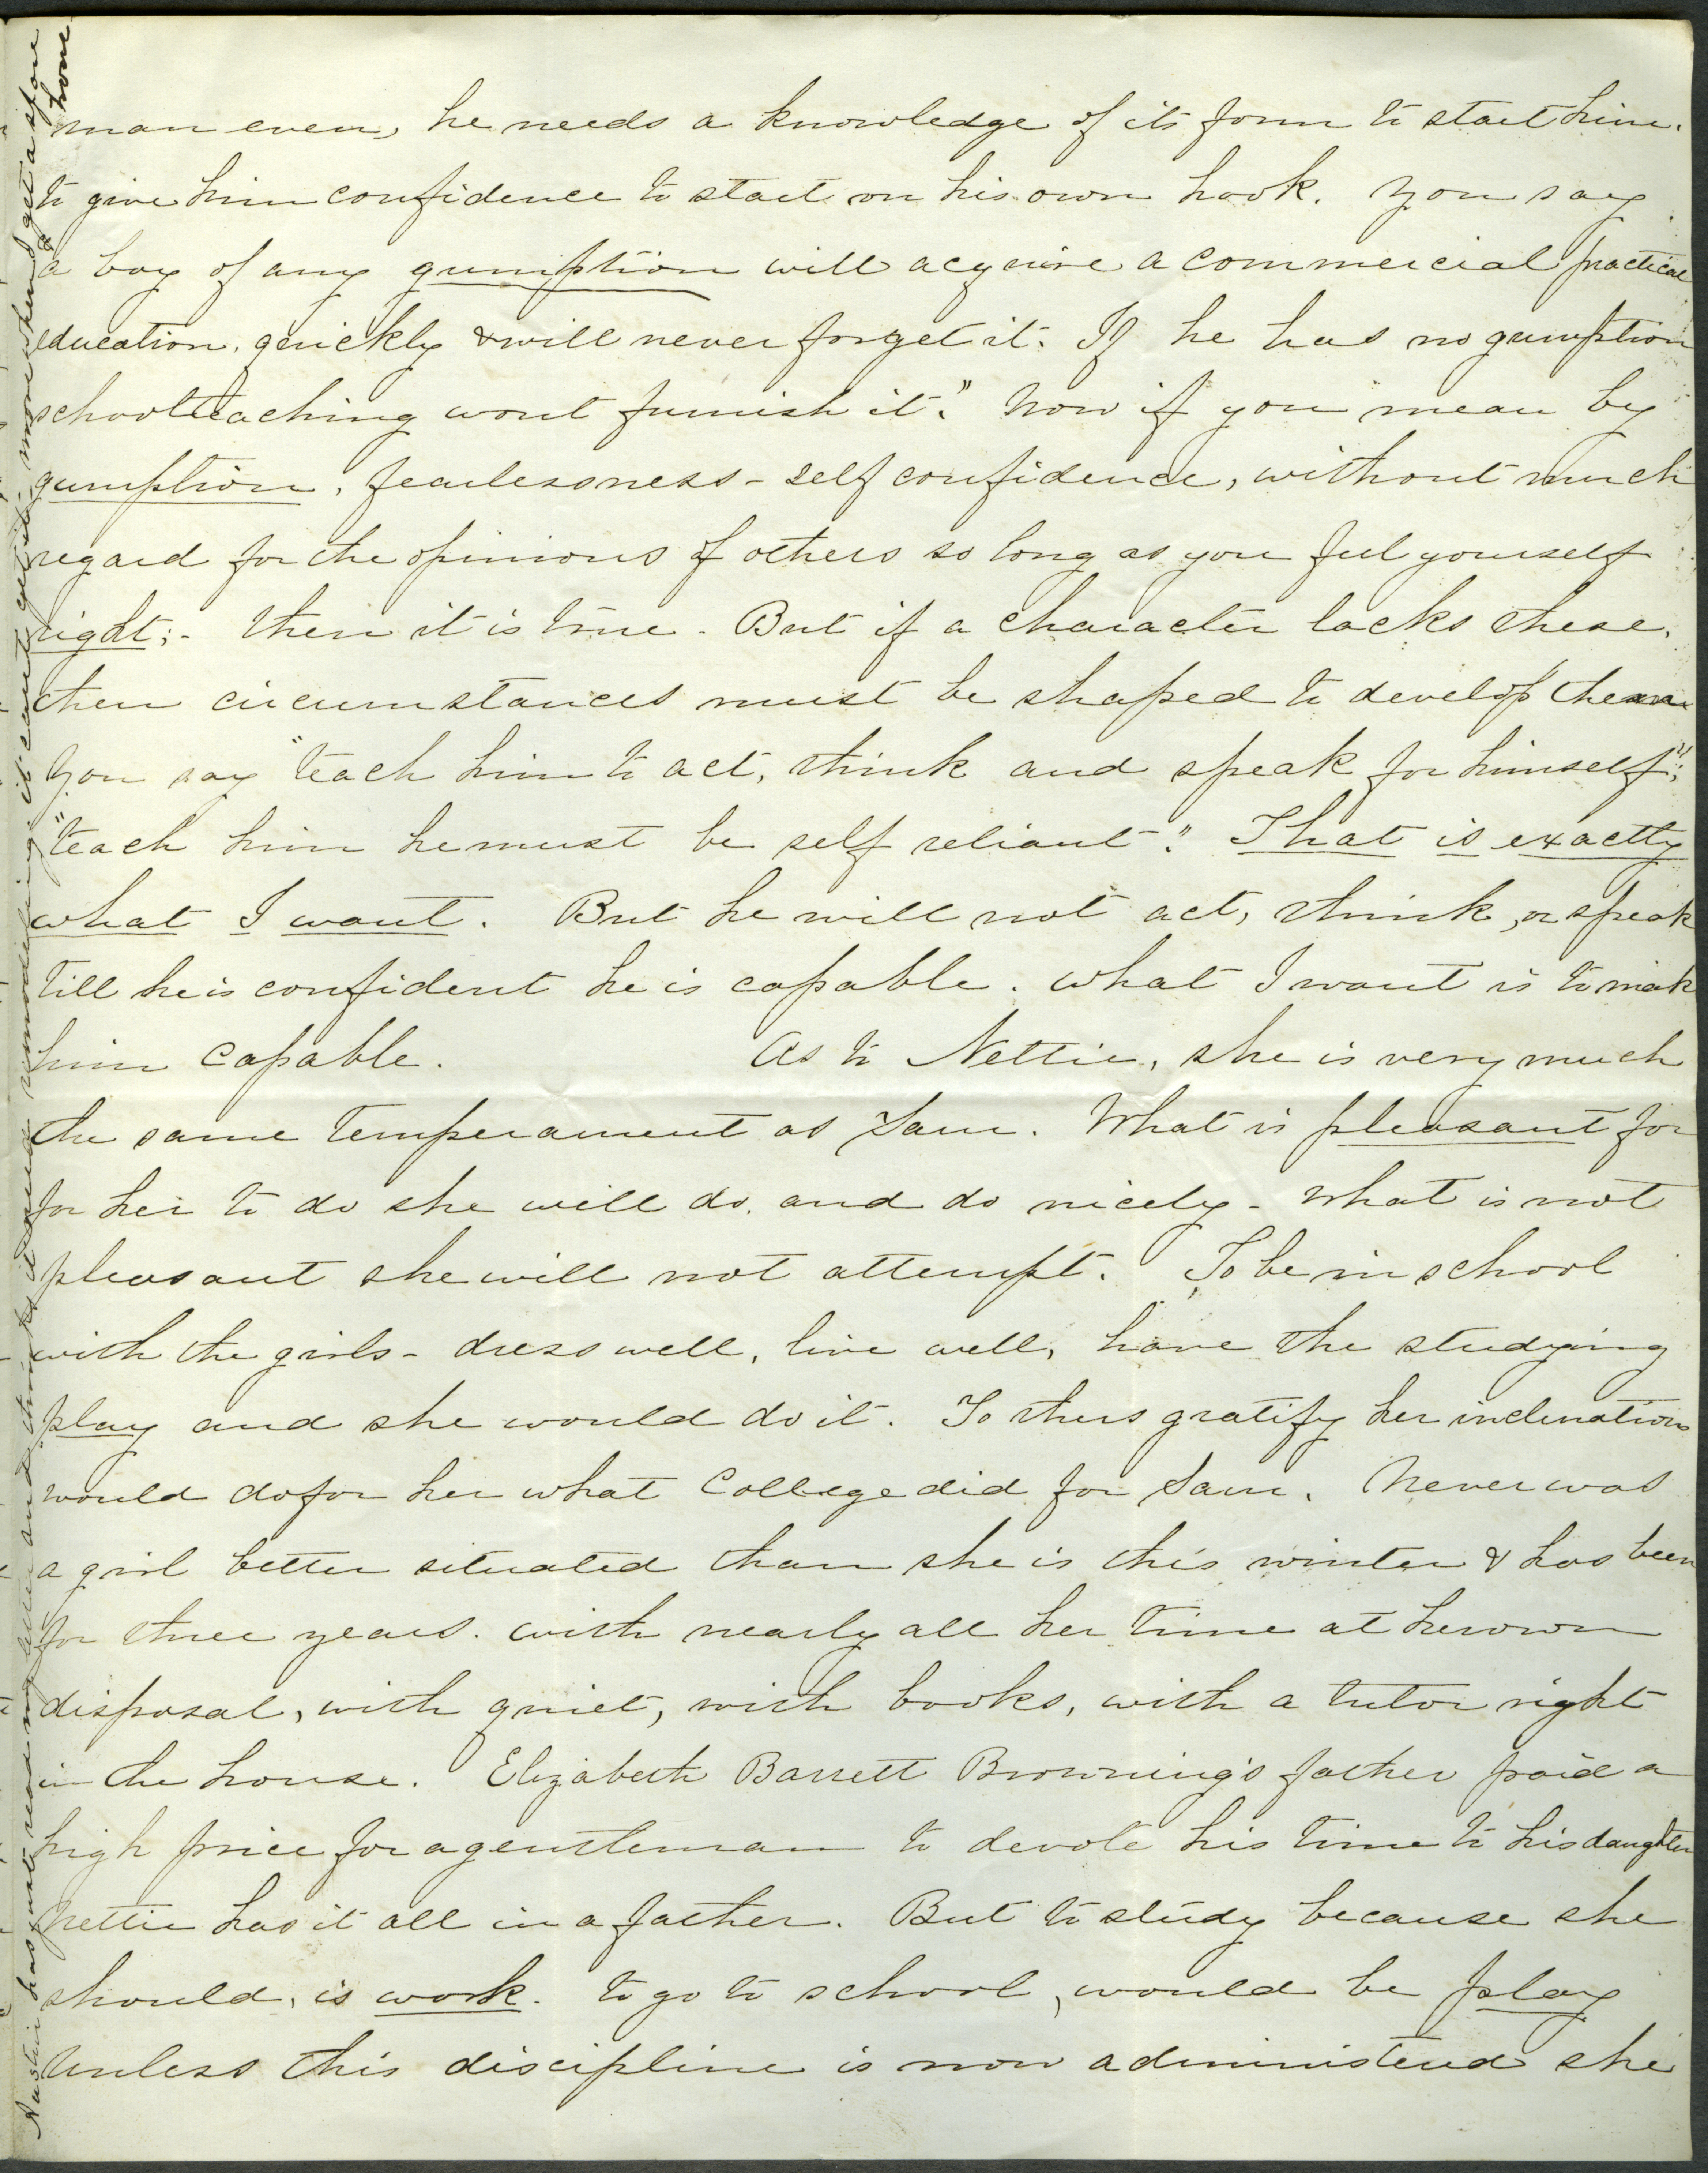 man even, he needs a knowledge of its form to start him.
to give him confidence to start on his own hook. You say
a boy of any gumption will acquire a commercial practical
education, quickly & will never forget it. If he has no gumption
schoolteaching wont furnish it." Now if you mean by
gumption, fearlessness - self confidence, without much
regard for the opinions of others so long as you feel yourself
right; - then it is true. But if a character lacks these,
then circumstances must be shaped to develop them
You say "teach him to act, think and speak for himself";
"teach him he must be self reliant." That is exactly
what I want. But he will not act, think, or speak
till he is confident he is capable. What I want is to mak
him capable. As to Nettie, she is very much
the same temperament as Sam. What is pleasant for
for her to do she will do, and do nicely - what is not
pleasant she will not attempt. To be in school
with the girls - dress well, live well, have the studying
play and she would do it. To thus gratify her inclinations
would do for her what College did for Sam. Never was
a girl better situated than she is this winter & has been
for three years. with nearly all her time at her own
disposal, with quiet, with books, with a tutor right
in the house. Elizabeth Barrett Browning's father paid a
high price for a gentleman to devote his time to his daughter
Nettie has it all in a father. But to study because she
should, is work. to go to school, would be play
Unless this discipline is now administered she
Austin has just read my and thinks it
home